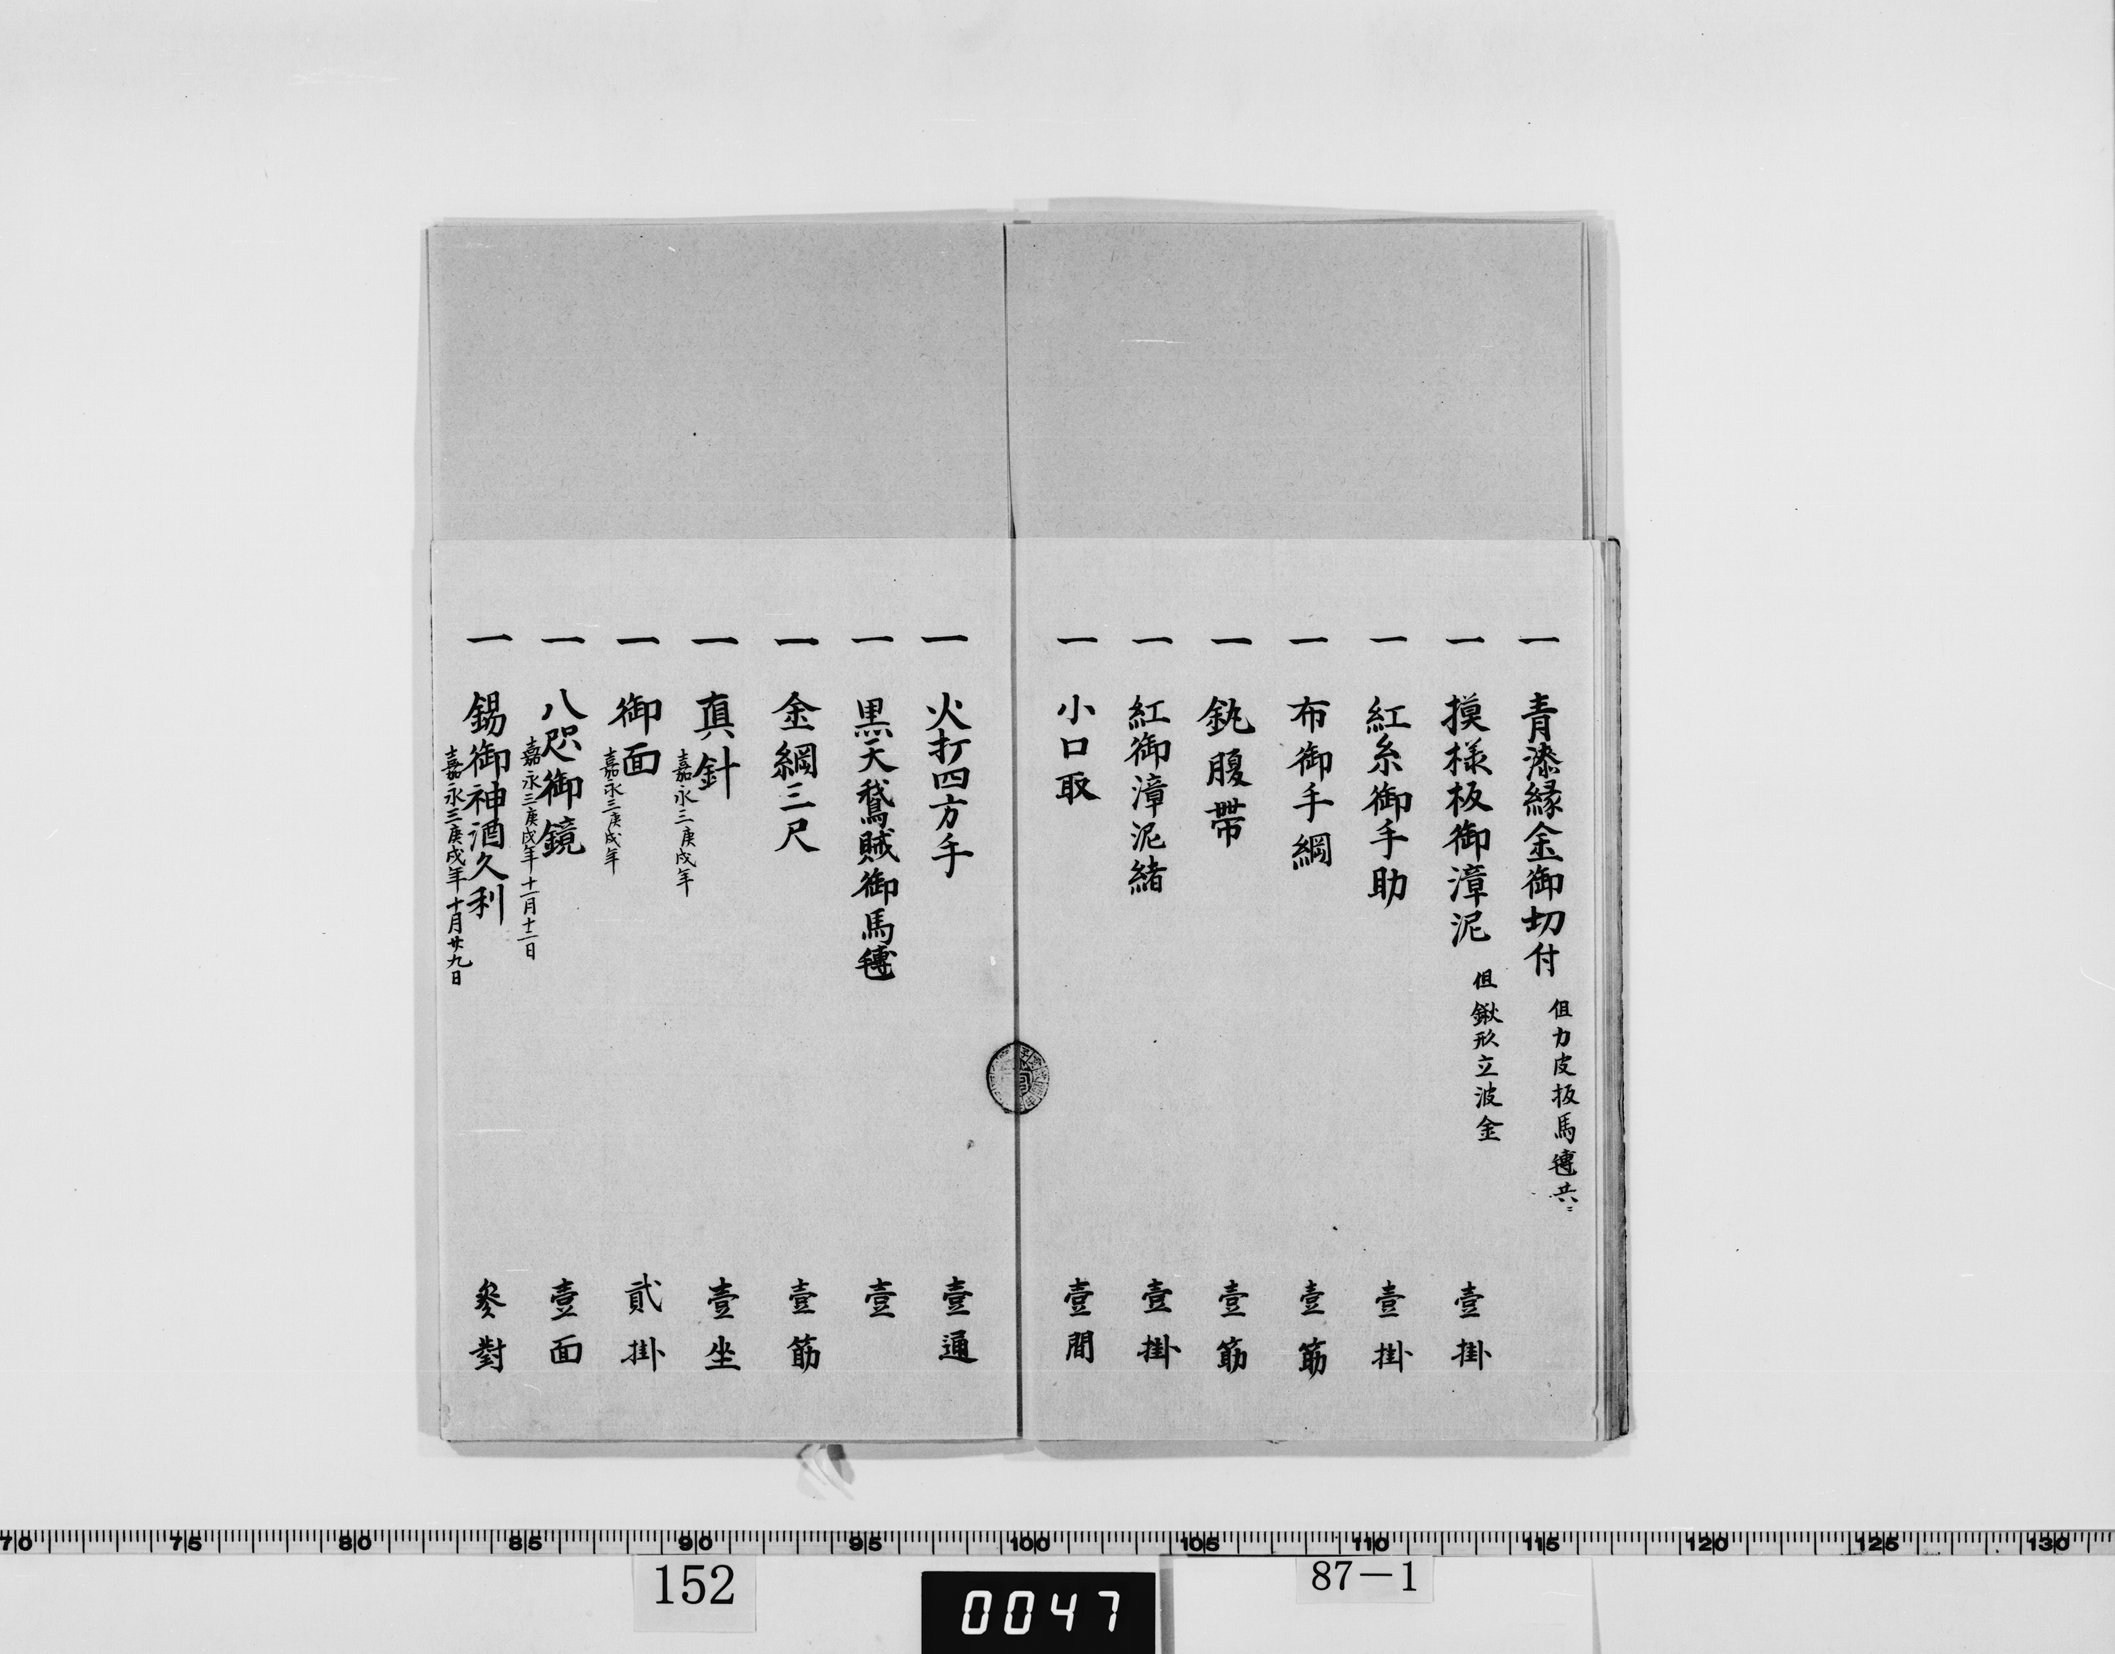 一 青漆縁金御切付 但力皮板馬氊共ニ
一 摸様板御漳泥 但鍬形立波金 壹掛
一 紅糸御手助 壹掛
一 布御手綱 壹筋
一 釻腹帯 壹筋
一 紅御漳泥緒 壹掛
一 小口取 壹間
一 火打四方手 壹通
一 黒天鵞賊御馬氊 壹
一 金綱三尺 壹筋
一 真針 壹坐
嘉永三庚戌年
一 御面 貳掛
嘉永三庚戌年
一 八咫御鏡 壹面
嘉永三庚戌年十一月十二日
一 錫御神酒久利 參對
嘉永三庚戌年十月廿九日
70 75 80 85 90 95 100 105 110 115 120 125 130
152
0047
87-1